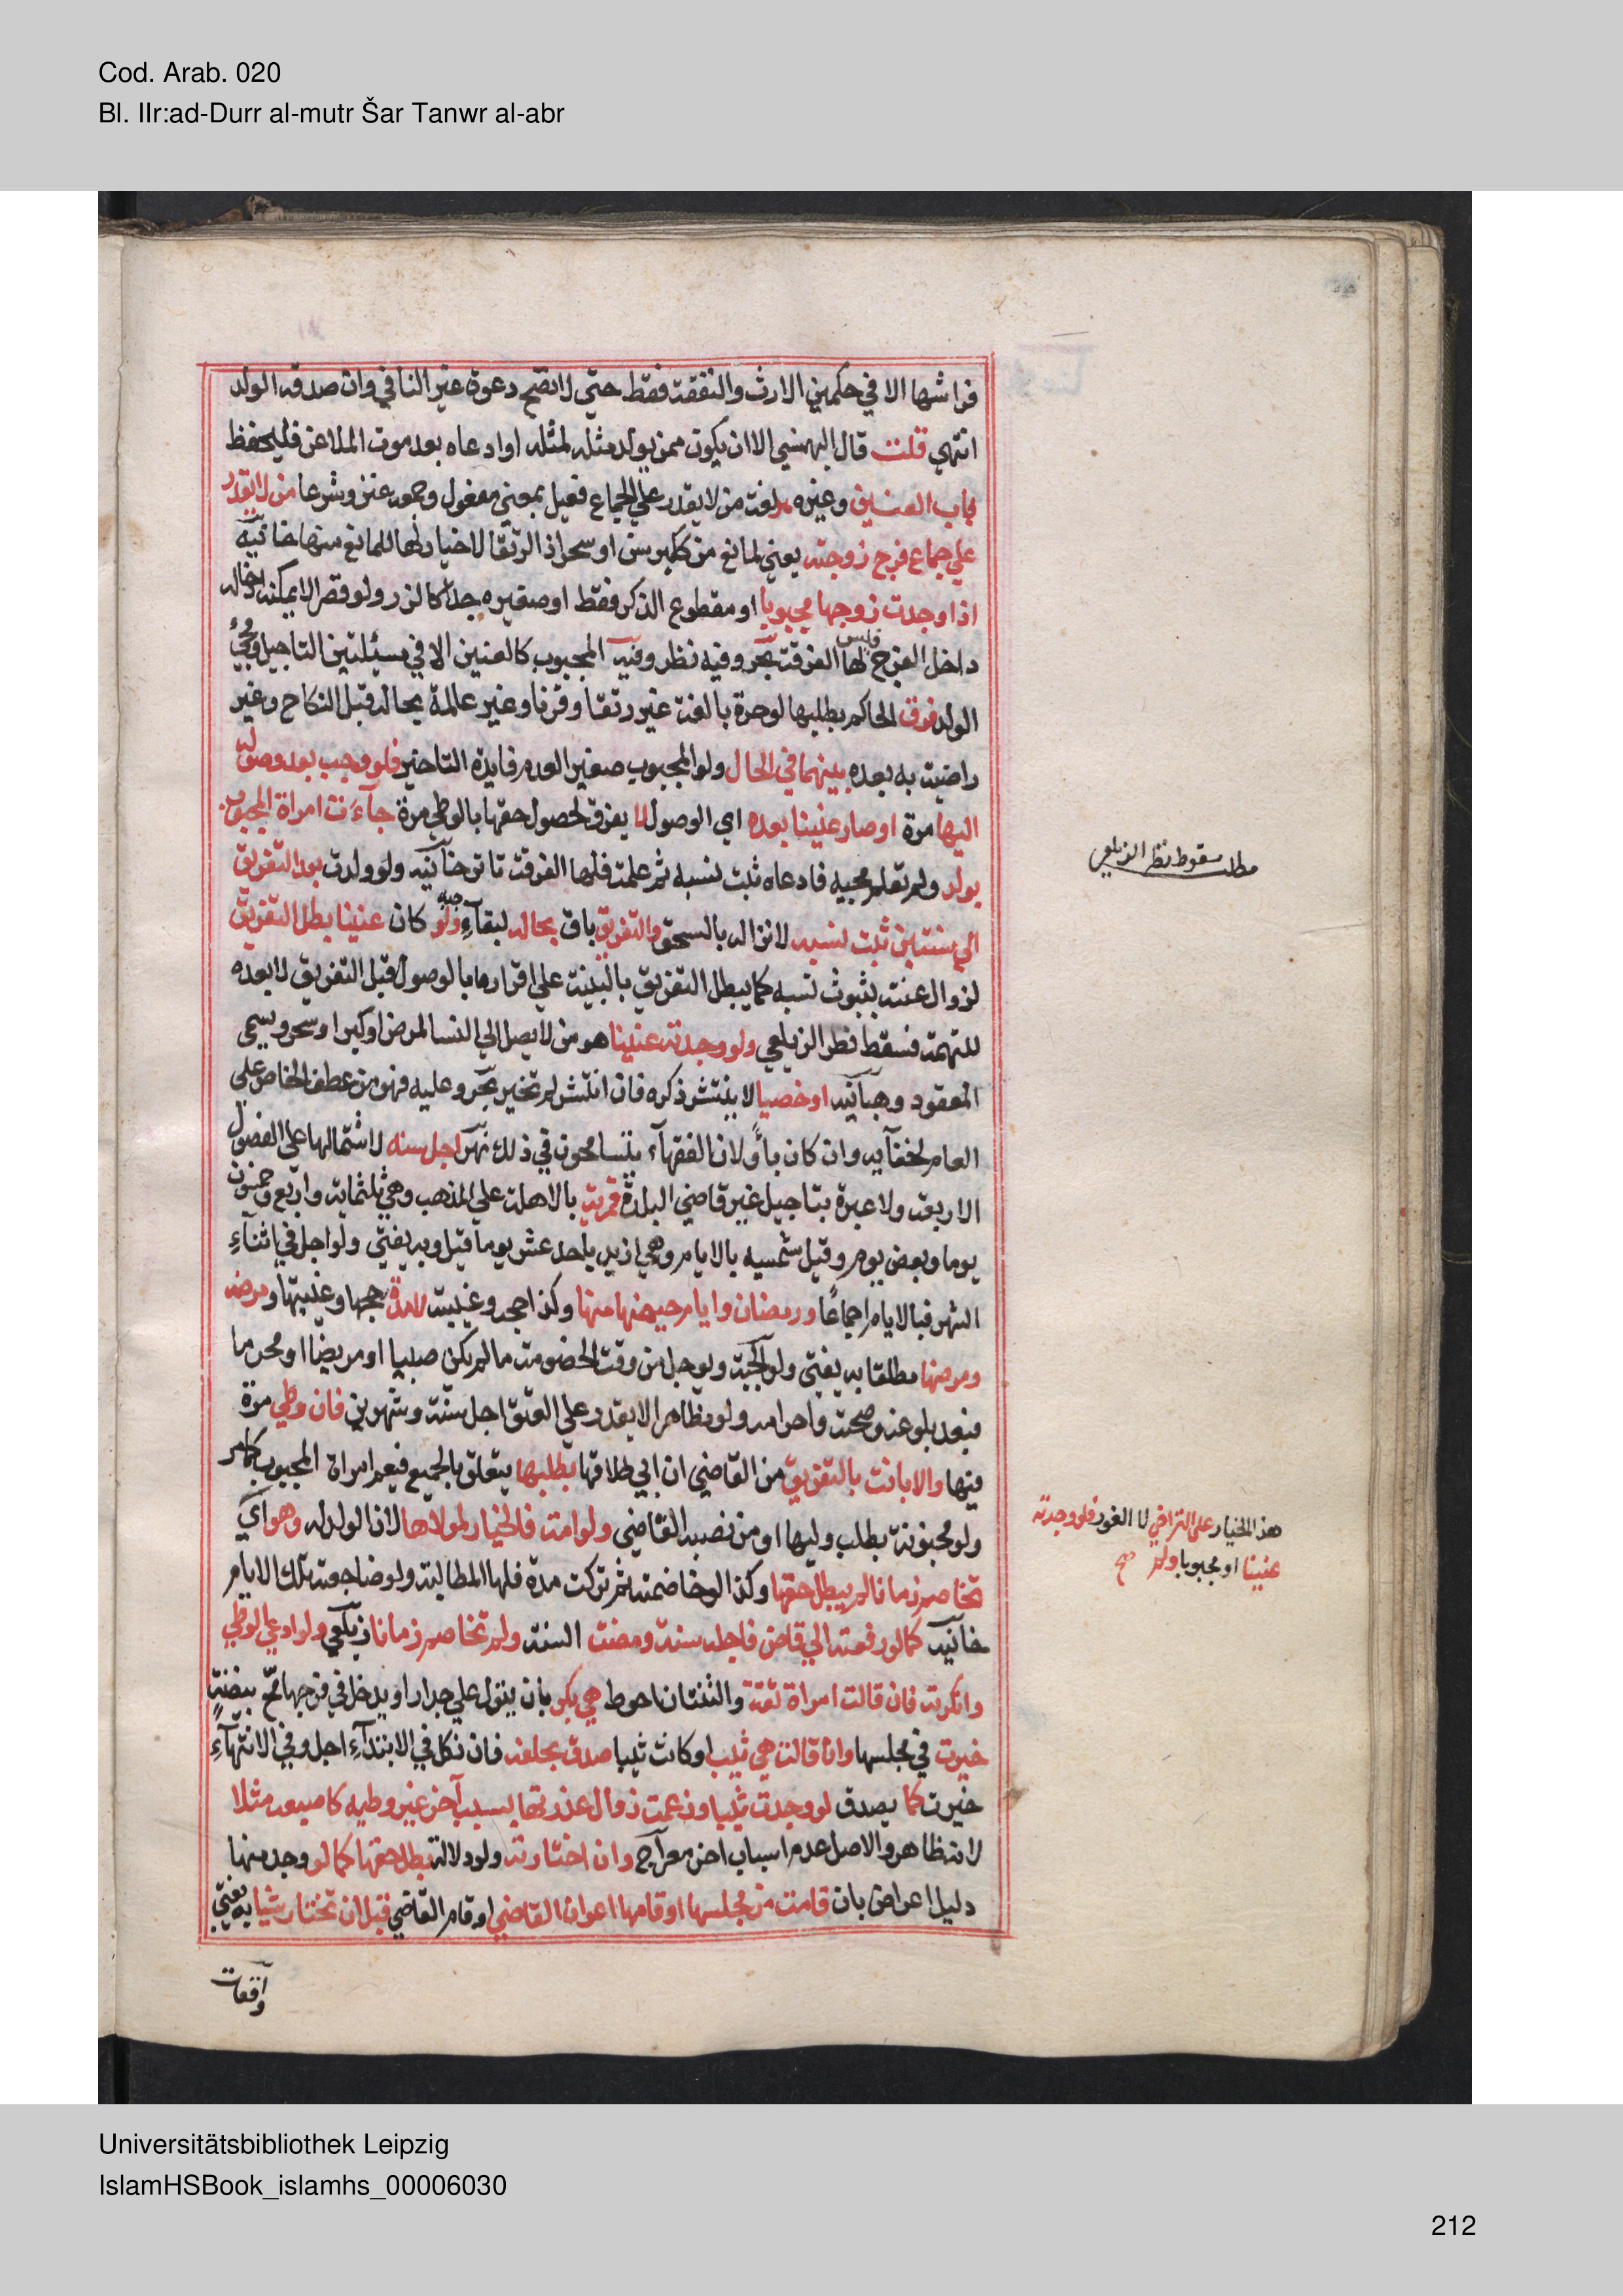 Cod. Arab. 020
Bl. IIr:ad-Durr al-mutr Šar Tanwr al-abr
فراشها الا في حكمين الارث والنفقة فقط حتي لا تصح دعوة غير النافي وان صدقه الولد
انتهي قلت قال البهنسي الا ان يكون ممن يولد مثله لمثله او ادعاه بعد موت الملاعن فليحفظ
باب العنين وغيره هو لغة من لا يقدر علي الجماع فعيل بمعني مفعول وجمعه عنن وشرعا من لا يقدر
علي جماع فرج زوجته يعني لمانع منه ككبر سن او سحر اذ الرتقا لا خيار لها للمانع منها خانيه
اذا وجدت زوجها مجبوبا او مقطوع الذكر فقط او صغيره جدا كالزر ولو قصر الا يمكنه ادخاله
داخل الفرج فليس لها الفرقة بحر وفيه نظر وفيه المجبوب كالعنين الا في مسئلتين التاجيل ومجئ
الولد فرق الحاكم بطلبها لو حرة بالغة غير رتقا وقرنا وغير عالمة بحاله قبل النكاح وغير
راضية به بعده بينهما في الحال ولو المجبوب صغير العدم فايدة التاخير فلو وجب بعد وصوله
اليها مرة او صار عنينا بعده اي الوصول لا يفرق لحصول حقها بالوطي مرة جآءت امراة المجبوب
بولد ولم تعلم بجبه فادعاه ثبت نسبه ثم علمت فلها الفرقة تاترخانيه ولو ولدت بعد التفريق
الي سنتين ثبت نسبه لانزاله بالسحق والتفريق باق بحاله لبقآء جبه ولو كان عنينا بطل التفريق
لزوال عنته بثبوث نسبه كما يبطل التفريق بالبينة علي اقرارها بالوصول قبل التفريق لا بعده
للتهمة فسقط نظر الزيلعي ولو وجدته عنينا هو من لا يصل الي النسا لمرض او كبر او سحر ويسمي
المعقود وهبانيه او خصيا لا ينتشر ذكره فان انتشر لم تخير بحر وعليه فهو من عطف الخاص علي
العام لخفآيه وان كان باو لان الفقهآء يتسامحون في ذلك نهر اجل سنه لاشتمالها علي الفصول
الاربعة ولا عبرة بتاجيل غير قاضي البلدة قمرية بالاهلة علي المذهب وهي ثلثماية واربع وخمسون
يوما وبعض يوم وقيل شمسيه بالايام وهي ازيد باحد عشر يوما قيل وبه يفتي ولو اجل في اثناءِ
الشهر فبالايام اجماعًا ورمضان وايام حيضها منها وكذا حجه وغيبته لا مدة حجها وغيبتها ومرضه
ومرضها مطلقا به يفتي ولوالجية ويوجل من وقت الخصومة ما لم يكن صبيا او مريضا او محرما
فبعد بلوغه وصحته واحرامه ولو مظاهرا لا يقدر علي العتق اجل سنة وشهرين فان وطي مرة
فيها والا بانت بالتفريق من القاضي ان ابي طلاقها بطلبها يتعلق بالجميع فيعم امراة المجبوب كما مر
ولو مجنونة بطلب وليها او من نصبه القاضي ولو امة فالخيار لمولاها لان الولد له وهو اي
تخاصم زمانا لم يبطل حقها وكذا لو خاصمته ثم تركت مدة فلها المطالبة ولو ضاجعته تلك الايام
خانيه كما لو رفعته الي قاض فاجله سنة ومضت السنة ولم تخاصم زمانا زيلعي ولو ادعي الوطي
وانكرته فان قالت امراة ثقة والثنتان احوط هي بكر بان يبول علي جدار او يدخل في فرجها مح بيضة
خيرت في مجلسها وان قالت هي ثيب او كانت ثيبا صدق بحلفه فان نكل في الابتداءِ اجل وفي الانتهآءِ
خيرت كما يصدق لو وجدت ثيبا وزعمت زوال عذرتها بسبب آخر غير وطيه كاصبعه مثلا
لانه ظاهر والاصل عدم اسباب اخر معراج وان اختارته ولو دلالة بطل حقها كما لو وجد منها
دليل اعراض بان قامت من مجلسها او قامها اعوان القاضي او قام القاضي قبل ان تختار شيا به يفتي
واقعات
مطلب سقوط نظر الزيلعي
هذا الخيار علي التراخي لا الفور فلو وجدته
عنينا او مجبوبا ولم صح
Universitätsbibliothek Leipzig
IslamHSBook_islamhs_00006030
212